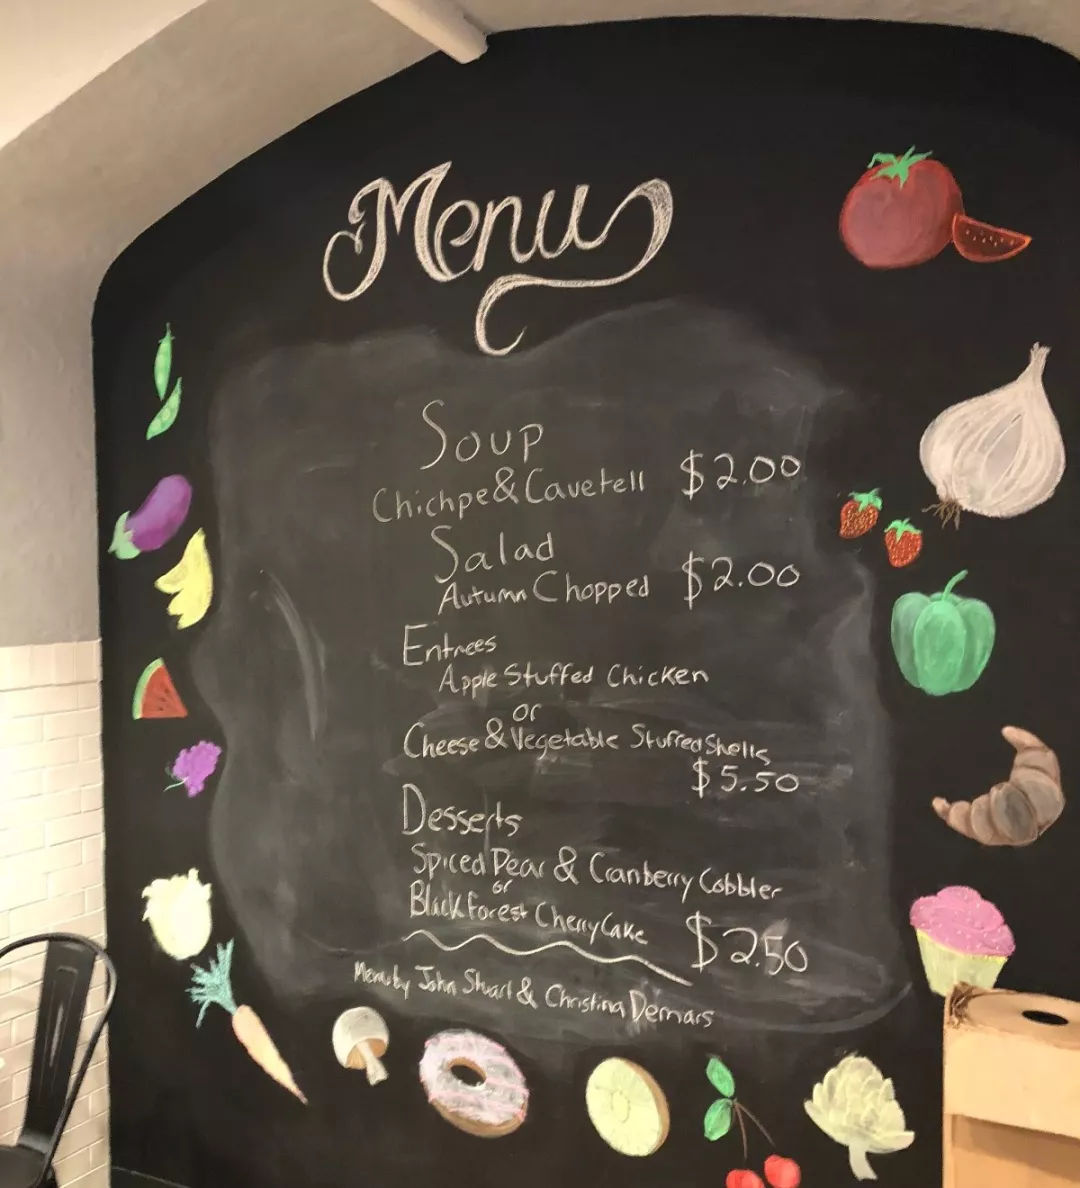 Menu
Soup
Chichpe & Cavetell $2.00
Salad
Autumn Chopped $2.00
Entrees
Apple Stuffed Chicken
or
Cheese & Vegetable Stuffed Shells
$5.50
Desserts
Spiced Pear & Cranberry Cobbler
or
Black Forest Cherry Cake $2.50
Menu by John Stuart & Christina Demars